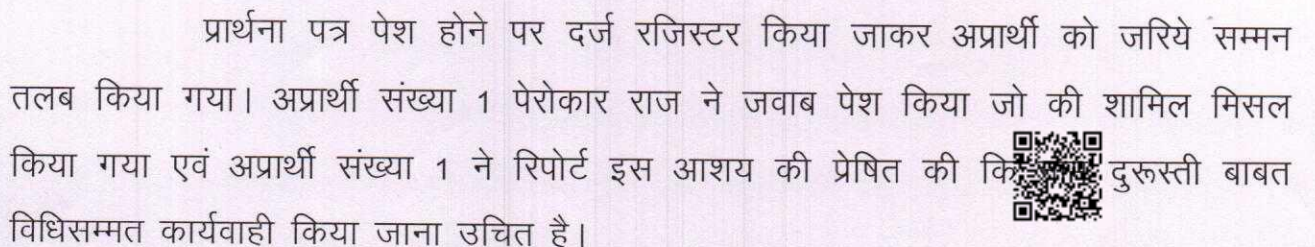 प्रार्थना पत्र पेश होने पर दर्ज रजिस्टर किया जाकर अप्रार्थी को जरिये सम्मन
तलब किया गया। अप्रार्थी संख्या 1 पेरोकार राज ने जवाब पेश किया जो की शामिल मिसल
किया गया एवं अप्रार्थी संख्या 1 ने रिपोर्ट इस आशय की प्रेषित की कि दुरूस्ती बाबत
विधिसम्मत कार्यवाही किया जाना उचित है।